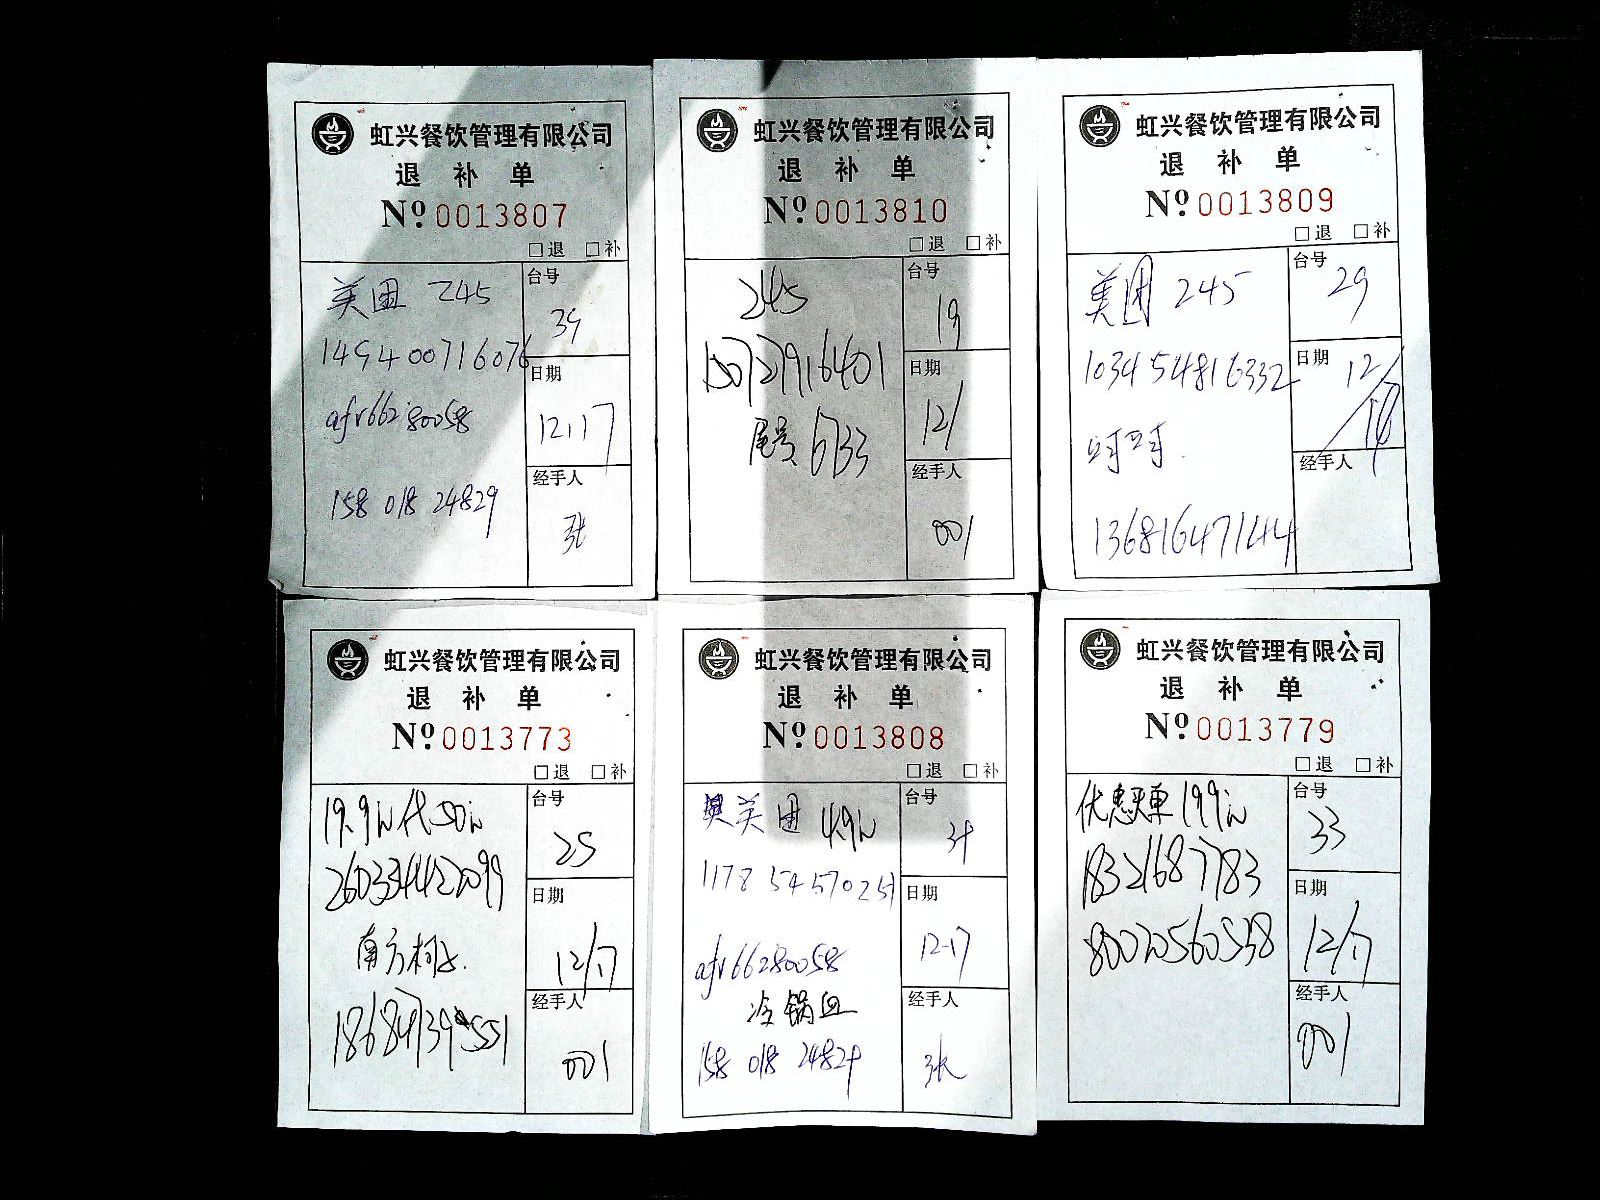 虹兴餐饮管理有限公司
退 补 单
Nº 0013807
□退 □补
美团 245
149400716076
afr66280058
158 018 24829
台号
39
日期
12.17
经手人
张
虹兴餐饮管理有限公司
退 补 单
Nº 0013810
□退 □补
245
150727916401
尾号 6733
台号
19
日期
12/
经手人
001
虹兴餐饮管理有限公司
退 补 单
Nº 0013809
□退 □补
美团 245
103454816332
13681647144
台号
29
日期
12/
经手人
虹兴餐饮管理有限公司
退 补 单
Nº 0013773
□退 □补
19.9元代50元
南方
台号
25
日期
12/17
经手人
001
虹兴餐饮管理有限公司
退 补 单
Nº 0013808
□退 □补
美团 49元
1178 54570251
afr66280058
冷锅血
158 018 24829
台号
39
日期
12-17
经手人
张
虹兴餐饮管理有限公司
退 补 单
Nº 0013779
□退 □补
优惠 199元
18321687783
80020560538
台号
33
日期
12/17
经手人
001